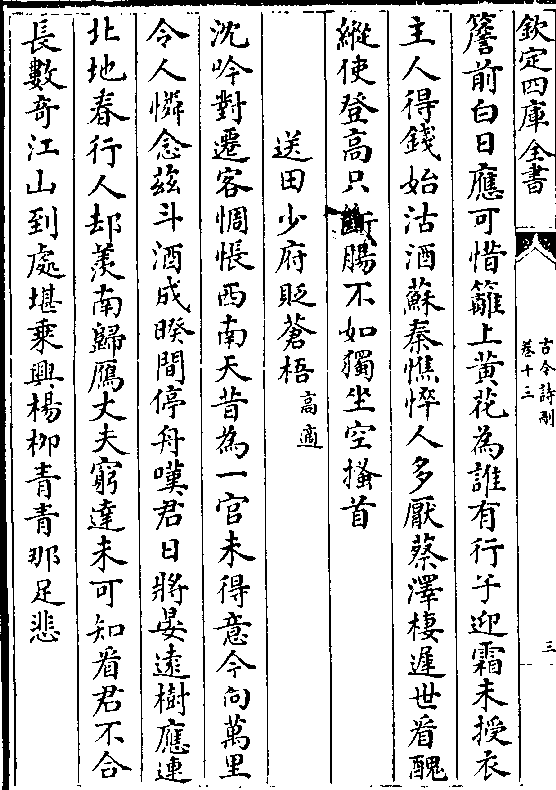 欽定四庫全書
古今詩刪
卷十三
三
簷前白日應可惜籬上黄花為誰有行子迎霜未授衣
主人得錢始沽酒蘇秦憔悴人多厭蔡澤棲遲世看醜
縱使登高只斷腸不如獨坐空搔首
送田少府貶蒼梧 高適
沈吟對遷客惆悵西南天昔為一官未得意今向萬里
令人憐念兹斗酒成暌間停舟嘆君日將晏逺樹應連
北地春行人却羡南歸鴈丈夫窮達未可知看君不合
長數奇江山到處堪乘興楊柳青青那足悲